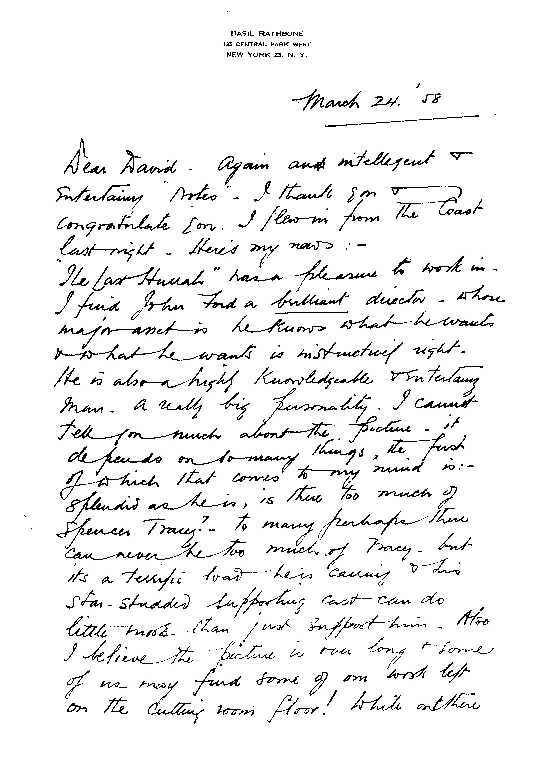 BASIL RATHBONE
135 CENTRAL PARK WEST
NEW YORK 23, N. Y.
March 24. '58
Dear David - Again and intellegent &
Entertaining "Notes" - I thank you &
congratulate you. I flew in from The Coast
last night - Here's my news :-
"The Last Hurrah" has a pleasure to work in -
I find John Ford a brilliant director - whose
major asset is he knows what he wants
& what he wants is instinctively right -
He is also a highly Knowledgeable & Entertaing
man - A really big personality. I cannot
tell you much about the picture - it
depends on so many things, the first
of which that comes to my mind is :-
splendid as he is, is there too much of
Spencer Tracy? - to many perhaps there
can never be too much of Tracy - but
its a terrific load he is carrying & his
Star-studded supporting cast can do
little more than just support him - Also
I believe the picture is over long & some
of us may find some of our work left
on the cutting room floor! While out there